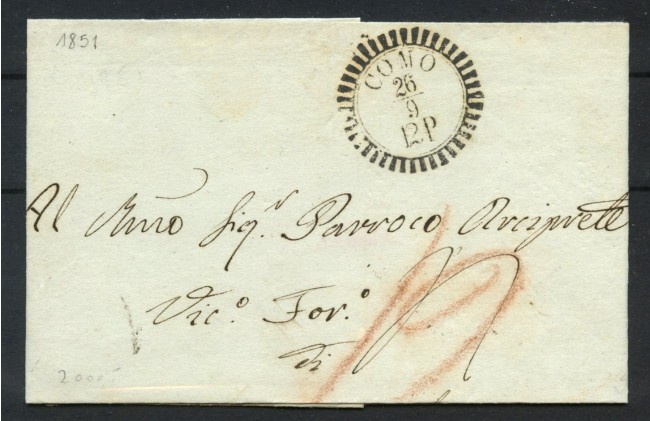 1851
COMO
26
9
12P
Al Sig.r Parroco Arciprete
Vic.o For.o
di